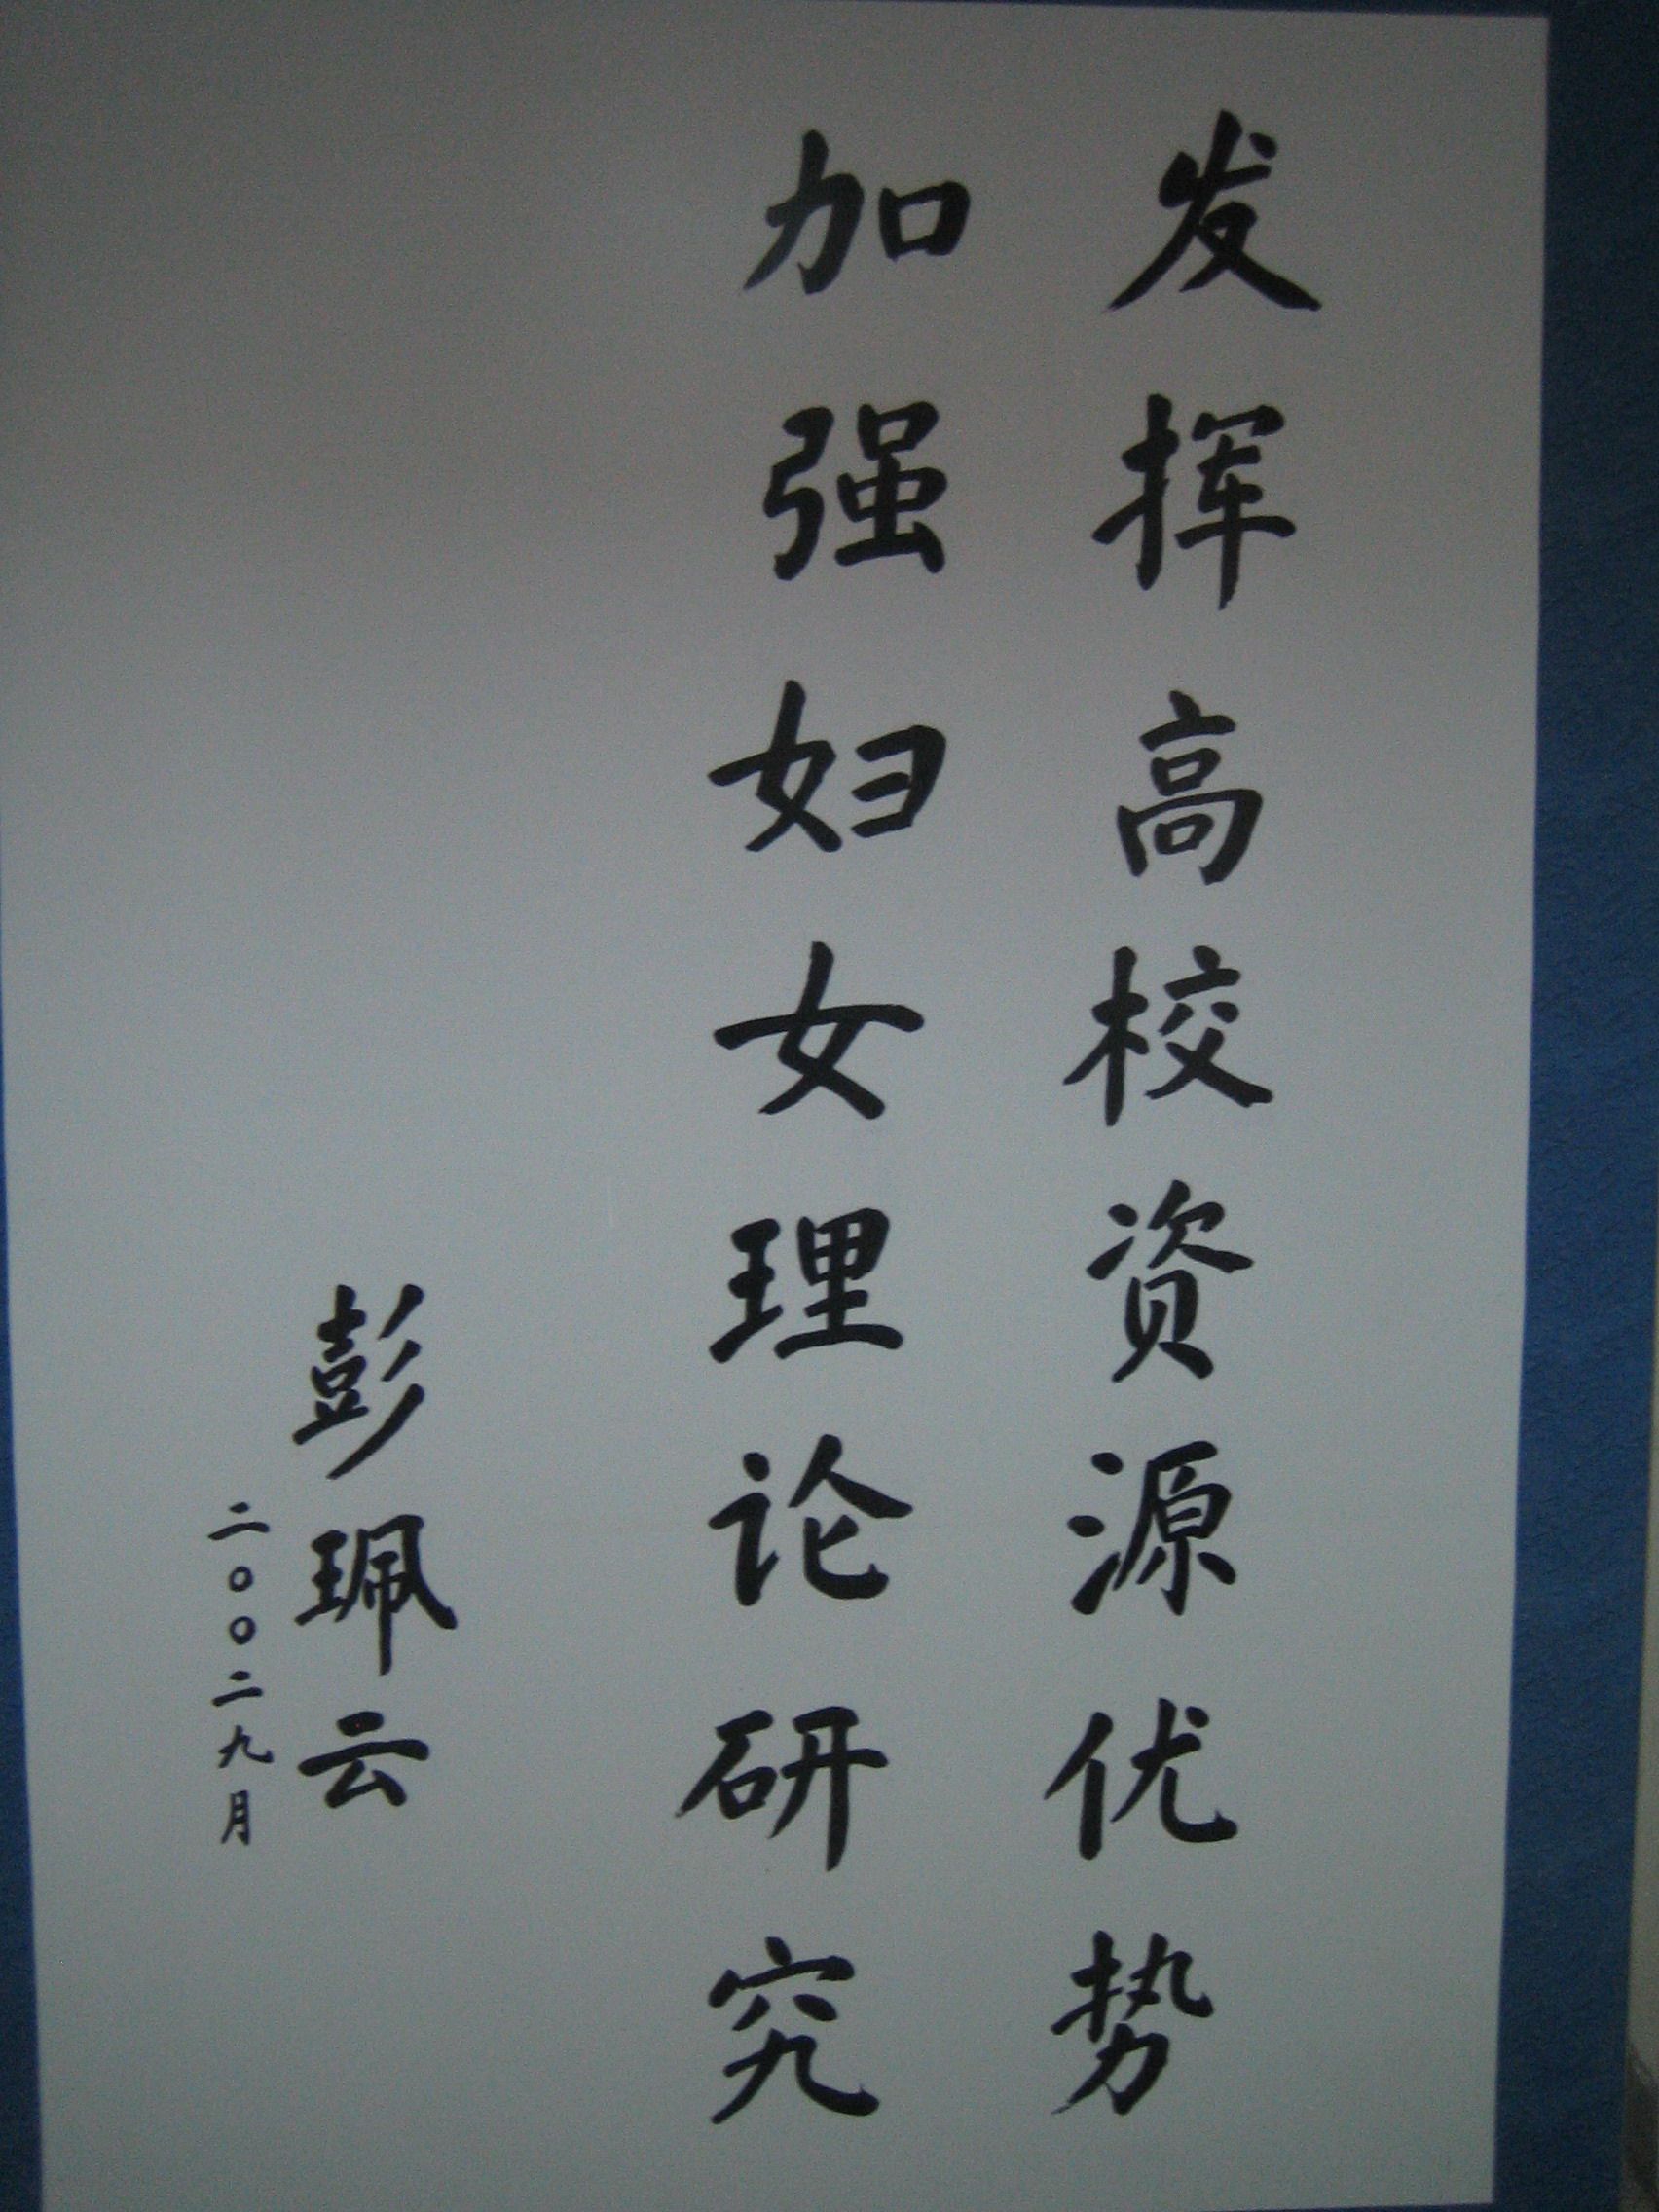 发挥高校资源优势
加强妇女理论研究
彭珮云
二〇〇二九月